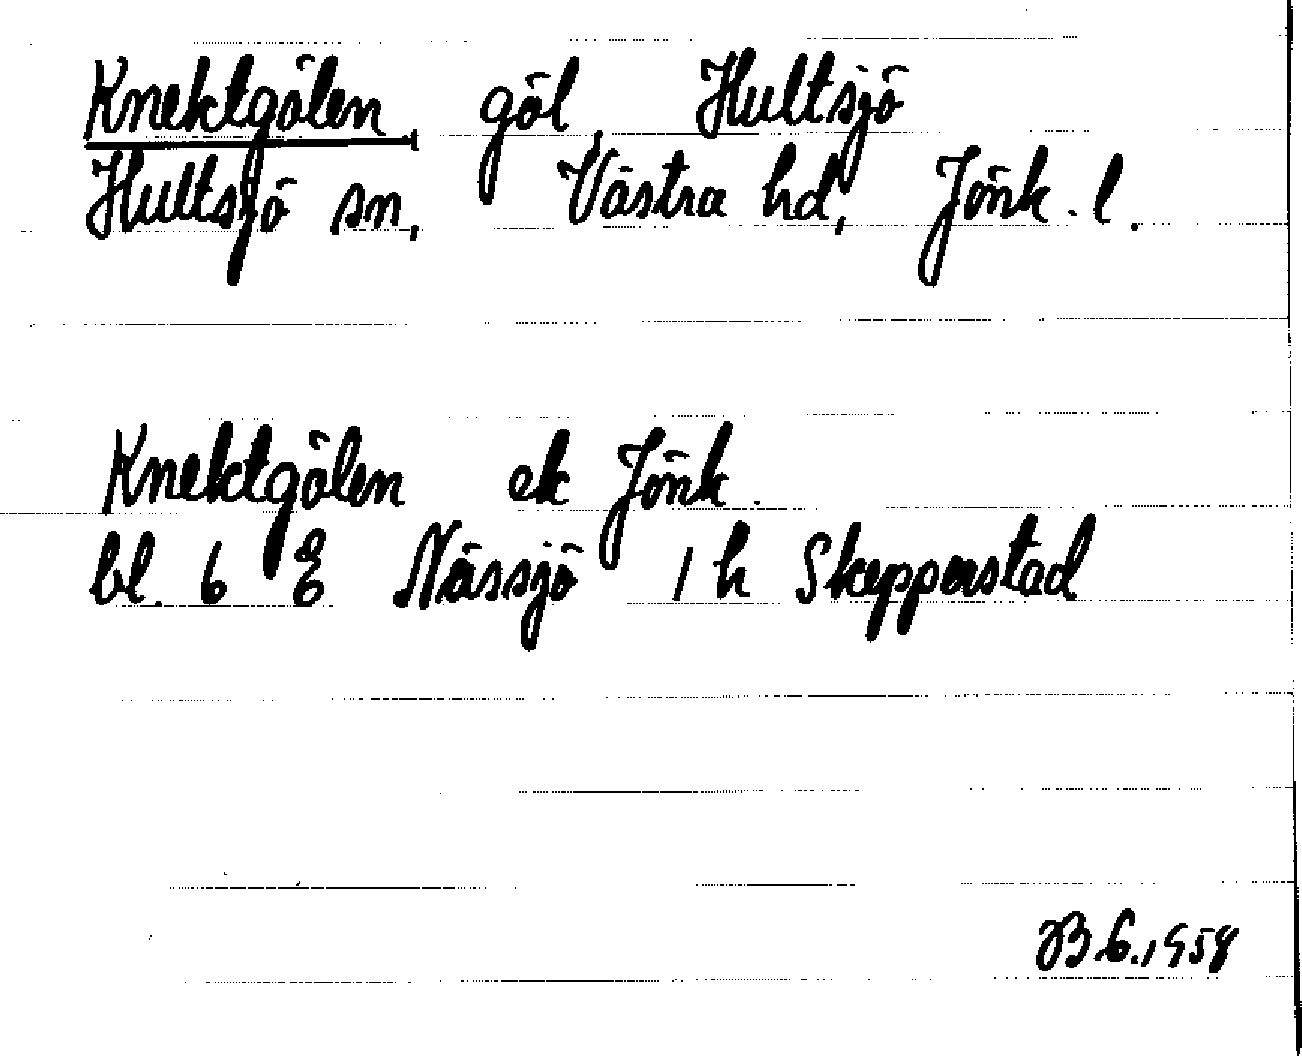 Knektgölen, göl, Hultsjö
Hultsjö sn, Västra hd, Jönk. l.
Knektgölen ek Jönk.
bl. 6 E Nässjö 1 h Skepperstad
B G. 1958